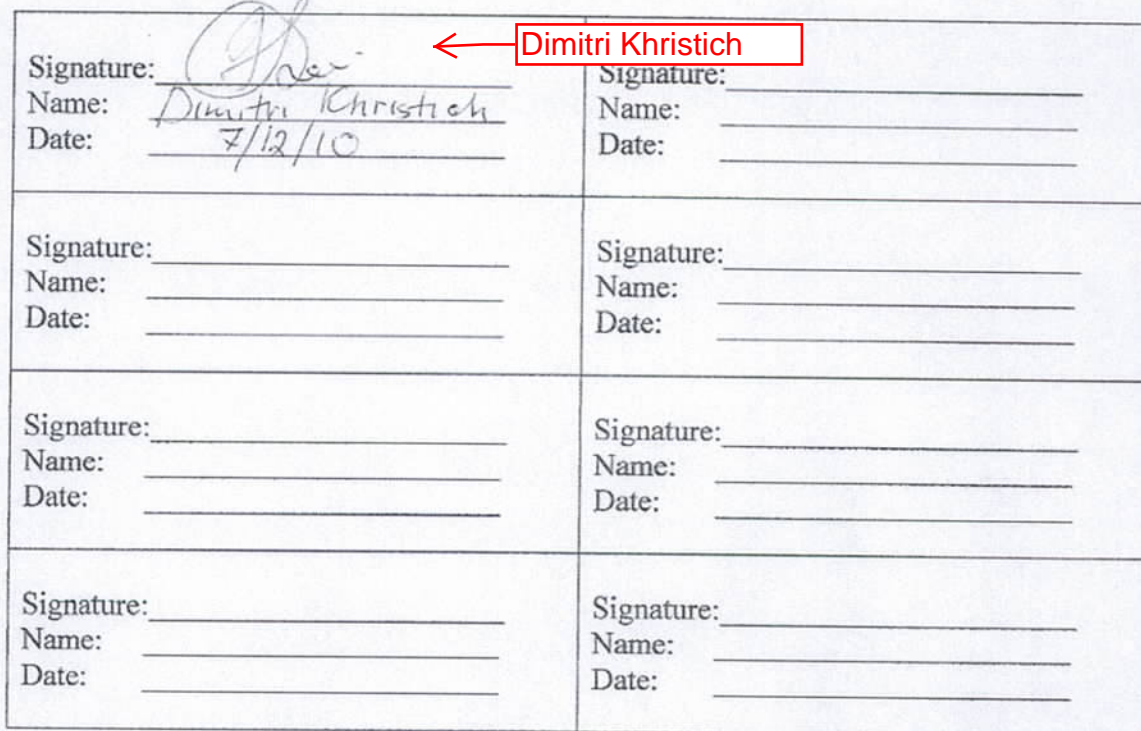 Dimitri Khristich
Signature:
Name: Dimitri Khristich
Date: 7/12/10
Signature:
Name:
Date:
Signature:
Name:
Date:
Signature:
Name:
Date:
Signature:
Name:
Date:
Signature:
Name:
Date:
Signature:
Name:
Date:
Signature:
Name:
Date: